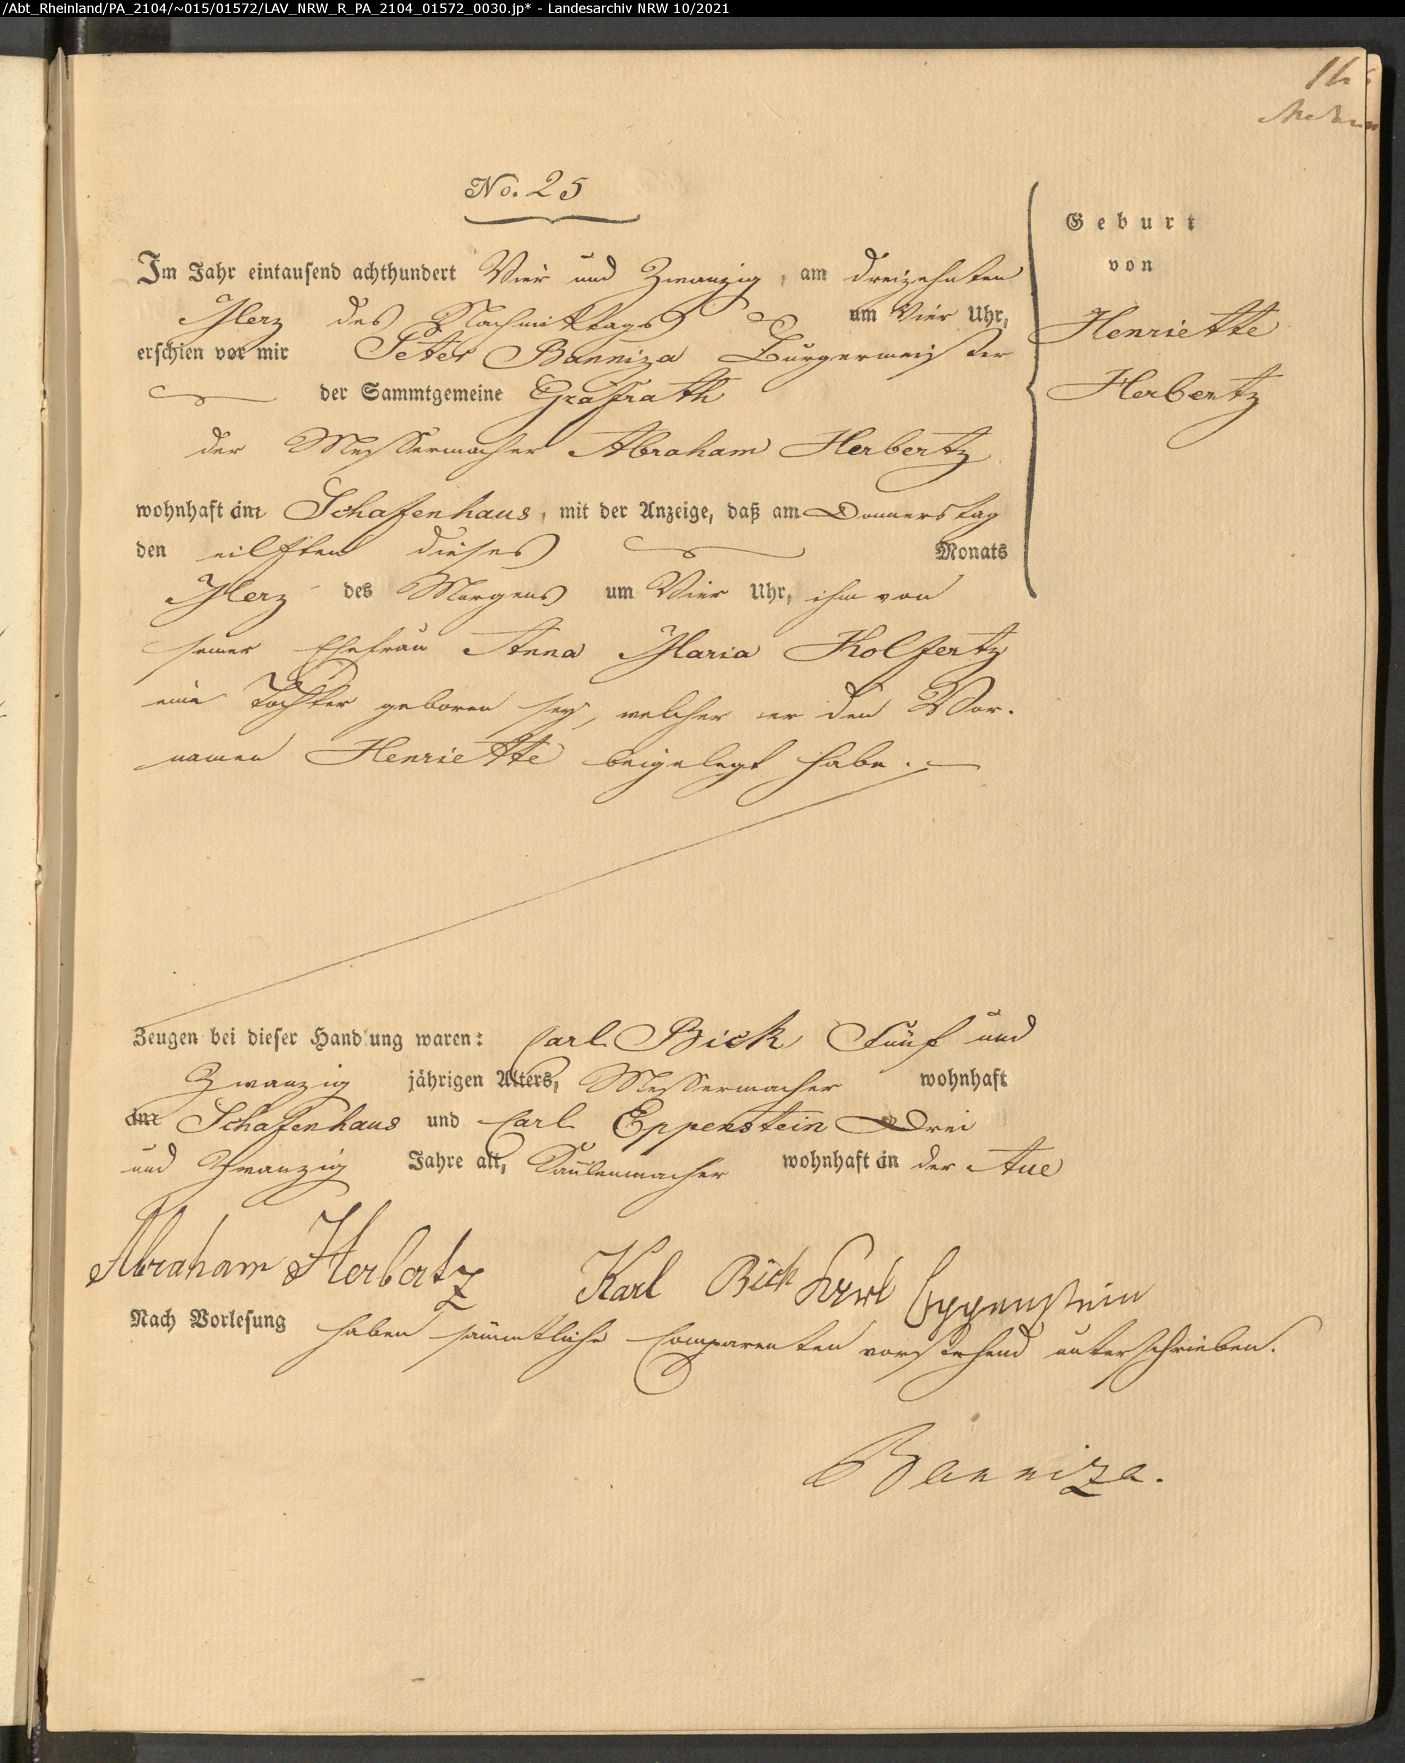 /Abt_Rheinland/PA_2104/~015/01572/LAV_NRW_R_PA_2104_01572_0030.jp* - Landesarchiv NRW 10/2021
No. 25
Geburt
von
Henriette
Herbertz
Im Jahr eintausend achthundert Vier und Zwanzig, am dreizehnten
Merz des Nachmittags um Vier Uhr,
erschien vor mir Peter Banniza Bürgermeister
der Sammtgemeine Gräfrath
der Messermacher Abraham Herbertz
wohnhaft am Schaffenhaus, mit der Anzeige, daß am Donnerstag
den eilften dieses Monats
Merz des Morgens um Vier Uhr, ihm von
seiner Ehefrau Anna Maria Kolfertz
eine Tochter geboren sey, welcher er den Vor-
namen Henriette beigelegt habe.
Zeugen bei dieser Handlung waren: Carl Bick Fünf und
Zwanzig jährigen Alters, Messermacher wohnhaft
am Schaffenhaus und Carl Eppenstein Drei
und Zwanzig Jahre alt, wohnhaft in der Aue
Abraham Herbertz Karl Bick Karl Eppenstein
Nach Vorlesung haben sämmtliche Comparenten vorstehend unterschrieben.
Banniza.